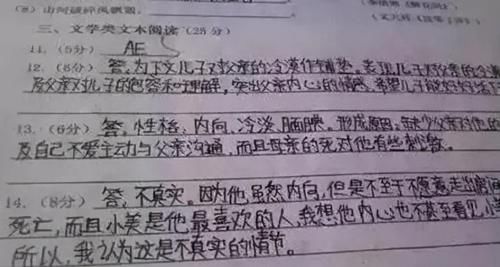 (8) 山河破碎风飘絮
三、文学类文本阅读(25分)
11. (5分) AE
12. (6分) 答，为下文儿子对父亲的冷漠作铺垫。表现儿子对父亲的冷漠
及父亲对儿子的包容和理解。突出父亲内心的情感，希望儿子能好好活下
13. (6分) 答，性格，内向、冷淡、腼腆。形成原因：缺少父亲对他的
及自己不爱主动与父亲沟通，而且母亲的死对他有些刺激。
14. (8分) 答，不真实。因为他虽然内向，但是不至于不愿意走出房
死亡，而且小美是他最喜欢的人，我想他内心也不甚至看见小美
所以，我认为这是不真实的情节。